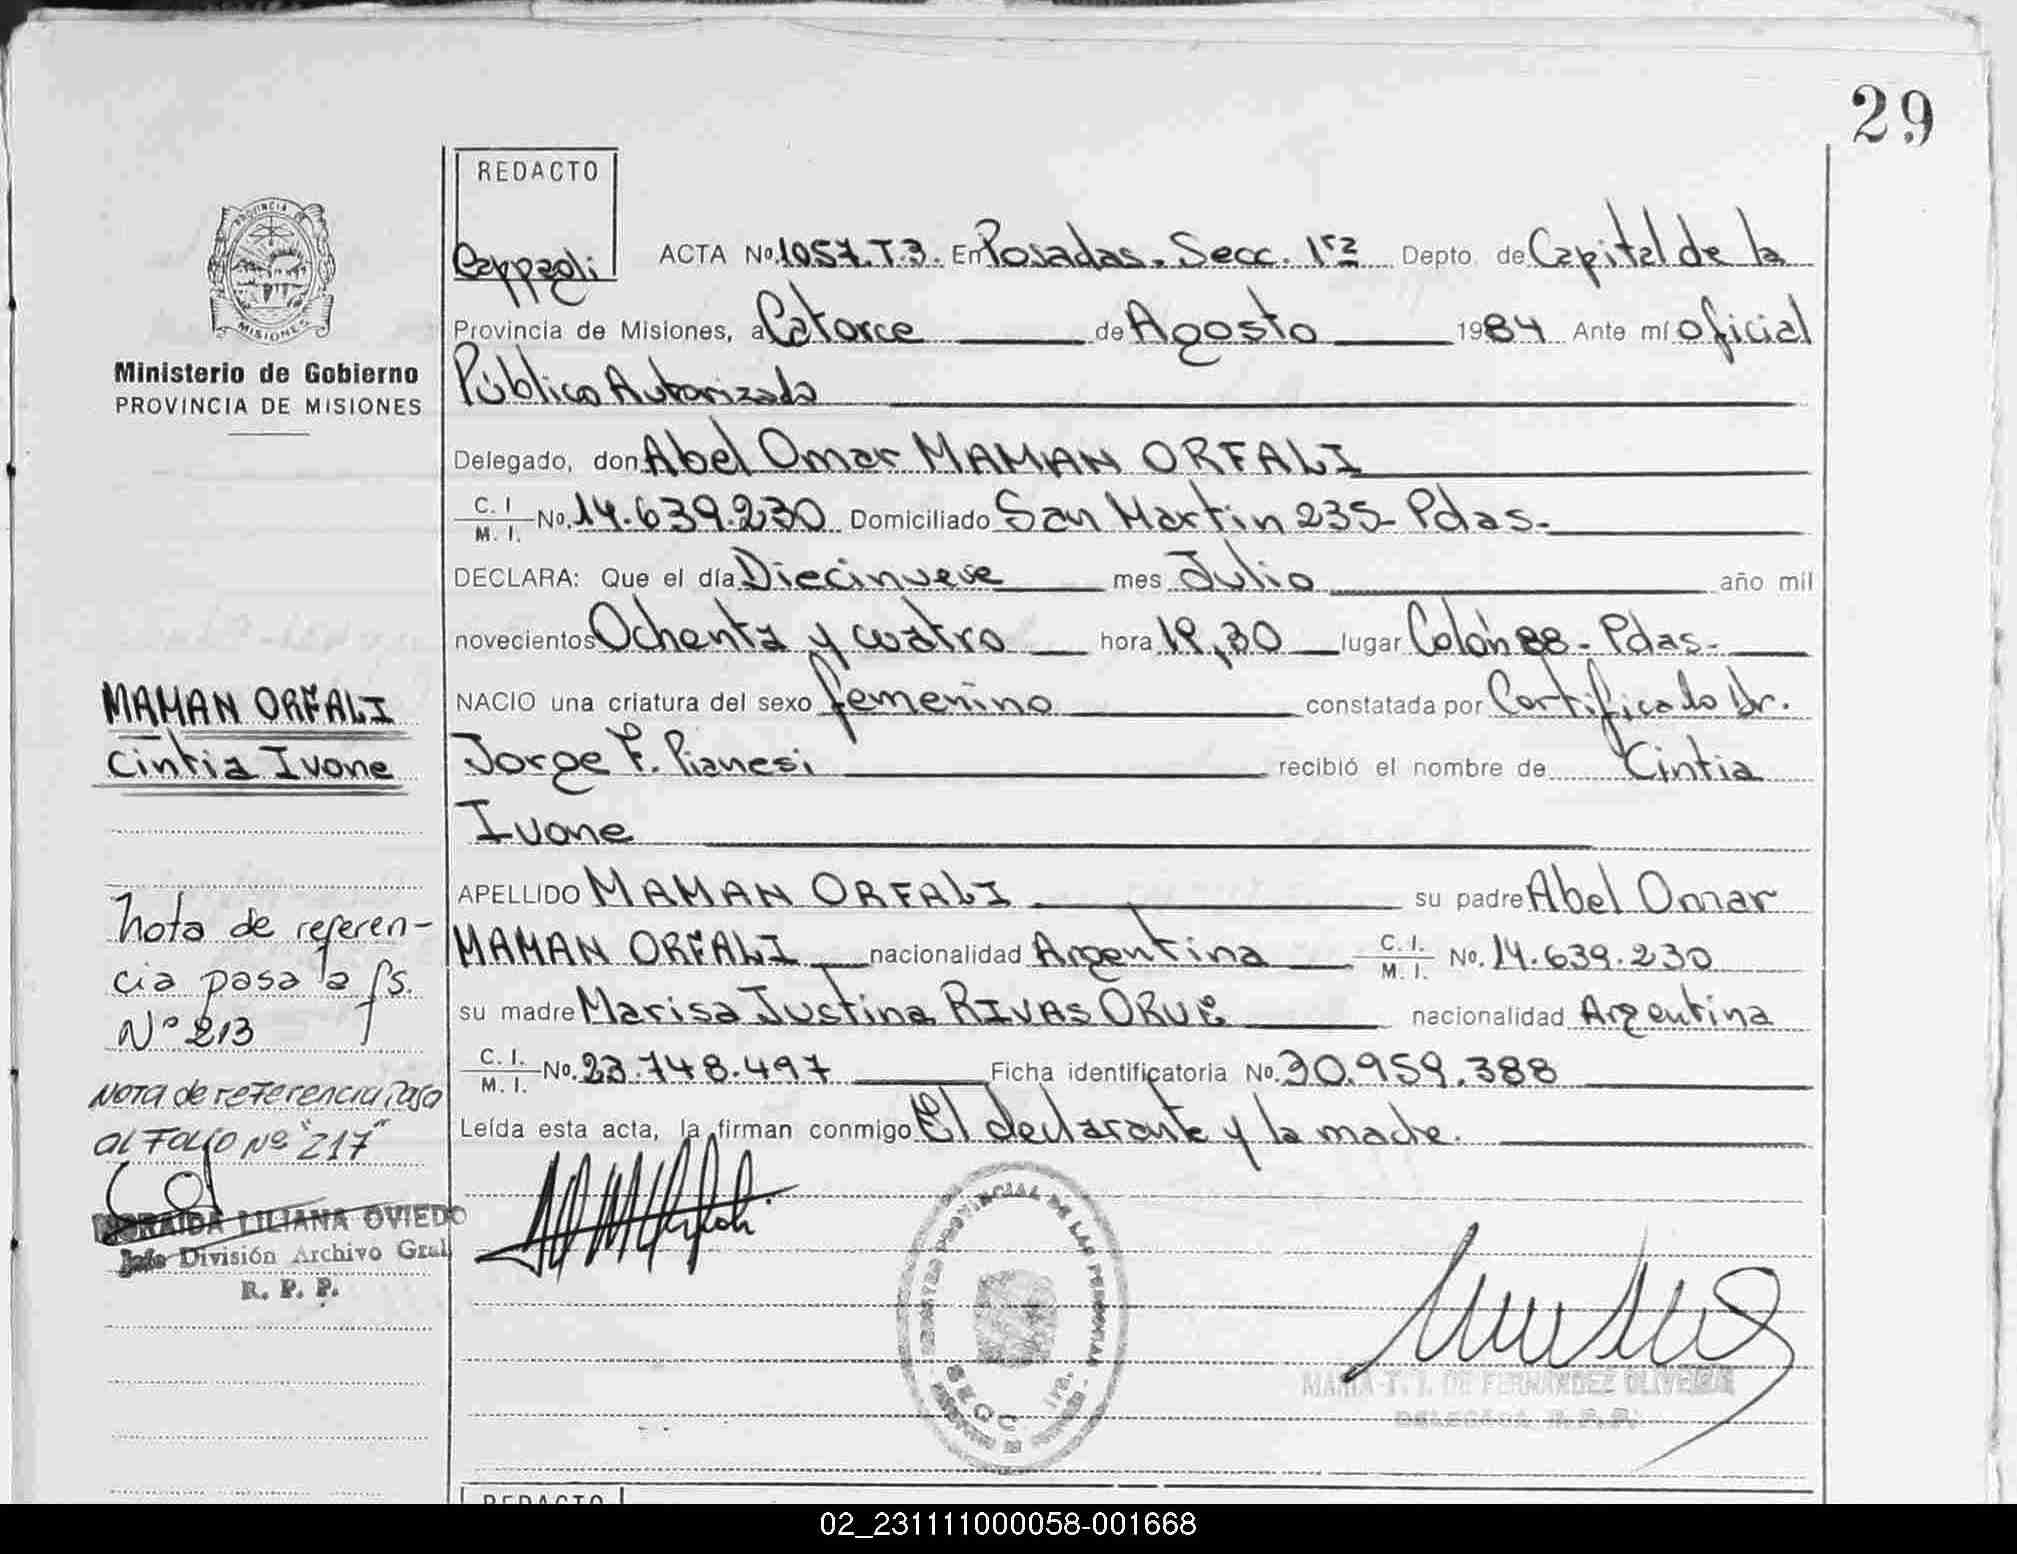 29
REDACTO
Cappagli
PROVINCIA DE
MISIONES
Ministerio de Gobierno
PROVINCIA DE MISIONES
ACTA No. 1057. T.3. En Posadas. Secc. 1ra Depto. de Capital de la
Provincia de Misiones, a Catorce de Agosto 1984 Ante mí oficial
Público Autorizado
Delegado, don Abel Omar MAMAN ORFALI
C. I. M. I. No. 14.639.230 Domiciliado San Martin 235- Pdas.
DECLARA: Que el día Diecinueve mes Julio año mil
novecientos Ochenta y cuatro hora 19,30 lugar Colón 88- Pdas-
NACIO una criatura del sexo femenino constatada por Certificado Dr.
Jorge F. Pianesi recibió el nombre de Cintia
Ivone
APELLIDO MAMAN ORFALI su padre Abel Omar
MAMAN ORFALI nacionalidad Argentina C. I. M. I. No. 14.639.230
su madre Marisa Justina RIVAS ORUE nacionalidad Argentina
C. I. M. I. No. 23.748.497 Ficha identificatoria No. 30.959.388
Leída esta acta, la firman conmigo El declarante y la madre.
MAMAN ORFALI
Cintia Ivone
Nota de referen-
cia pasa a fs.
Nº 213
Nota de referencia Paso
al FOLIO Nº "217"
NORAIDA LILIANA OVIEDO
Jefe División Archivo Gral
R. P. P.
REGISTRO PROVINCIAL DE LAS PERSONAS
SECC 1ra.
MARIA T. I. DE FERNANDEZ OLIVEIRA
DELEGADA R.P.P.
REDACTO
02_231111000058-001668